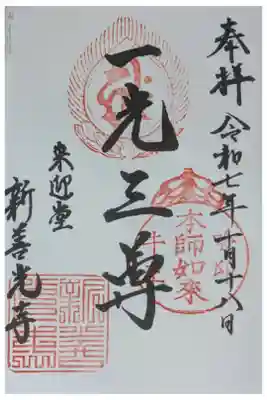 奉拝 令和七年十月十八日
一光三尊
本師如来
来迎堂
新善光寺